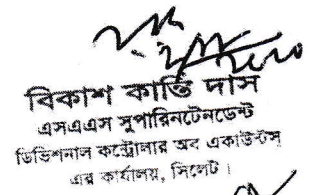 বিকাশ কান্তি দাস
এসএএস সুপারিনটেনডেন্ট
ডিভিশনাল কন্ট্রোলার অব একাউন্টস
এর কার্যালয়, সিলেট।